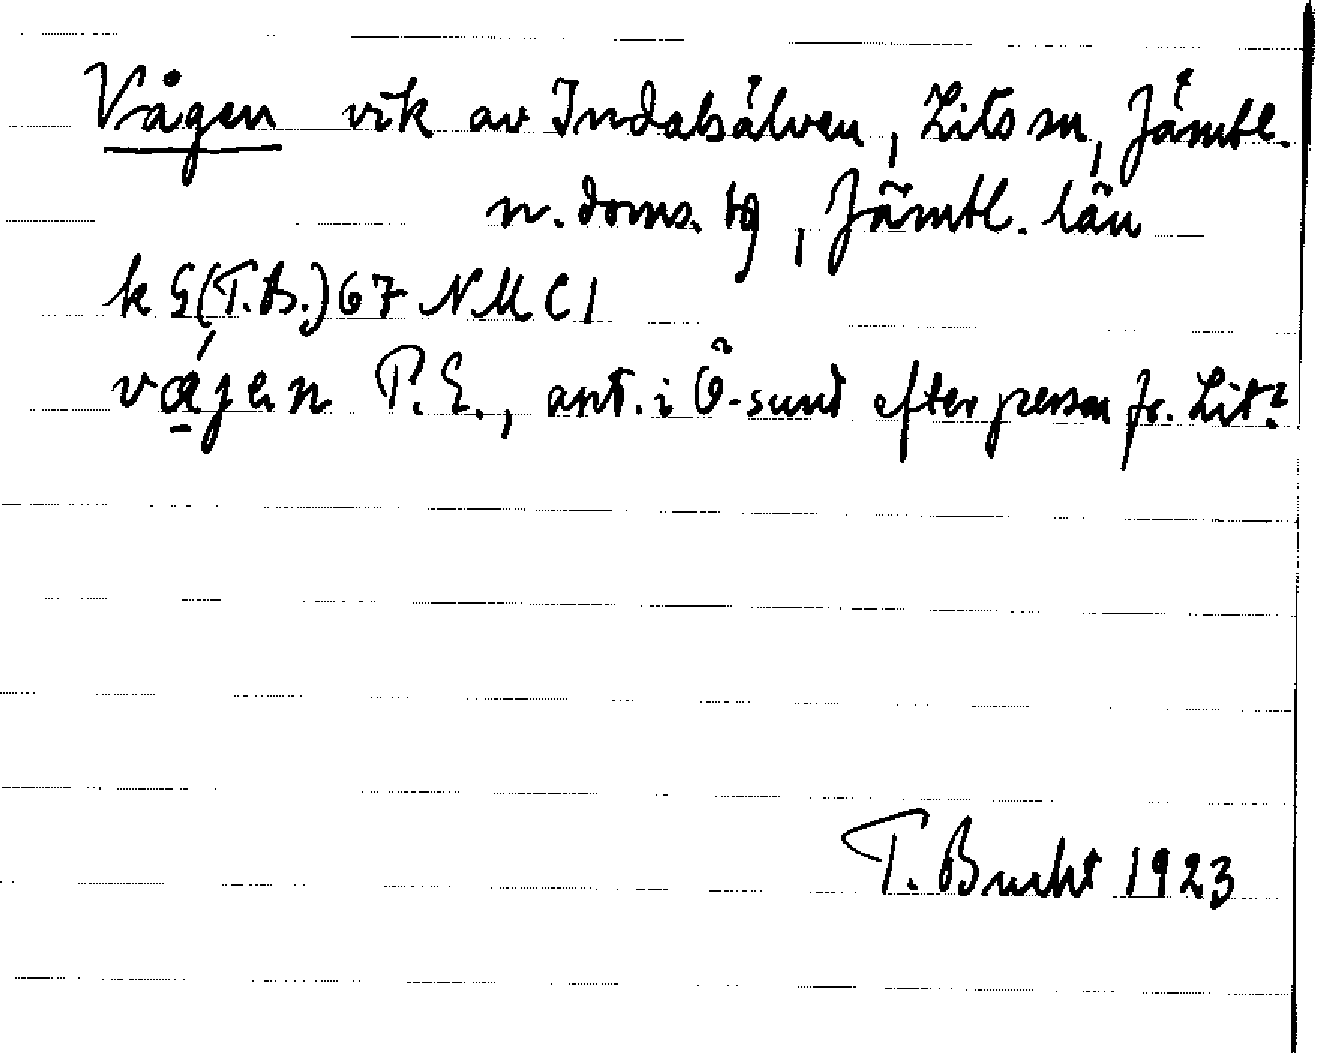 Vågen vik av Indalsälven, Lits sn, Jämtl.
n. doms. tg, Jämtl. län
k G (T.B.) 67 NMC 1
vá̱gen P.E., ant. i Ö-sund efter person fr. Lit?
T. Bucht 1923